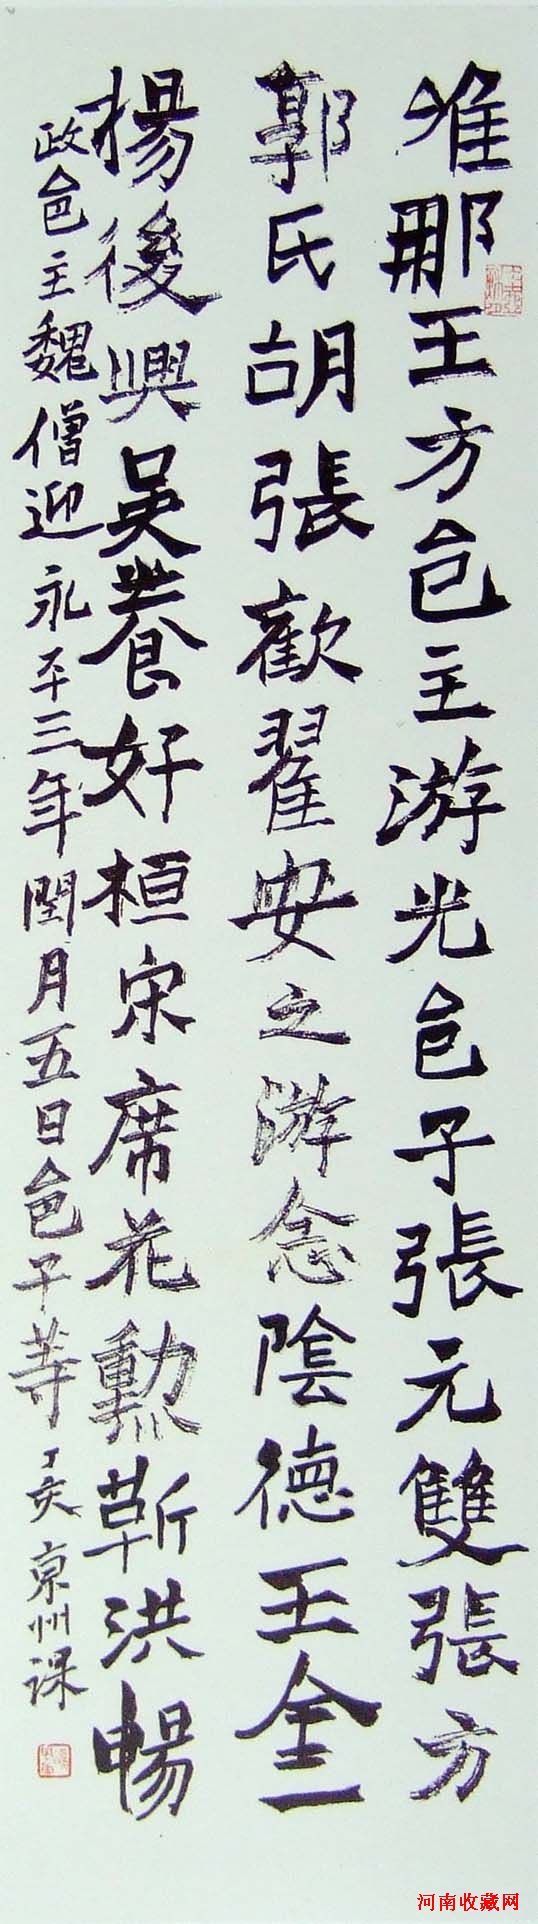 唯那王方邑主游光邑子張元雙張方
郭氏胡張歡翟安之游念陰德王金
楊後興吳養好桓宋席花勲靳洪暢
政邑主魏僧迎永平三年閏月五日邑子等丁亥京州課
河南收藏网